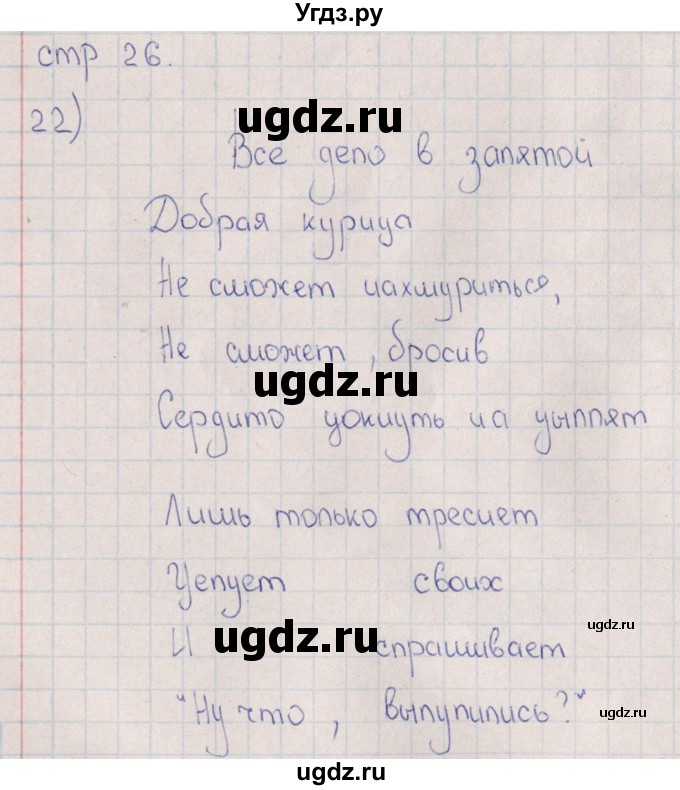 Угдз.ру
стр 26.
ugdz.ru
22)
Все дело в запятой
Добрая курица
Не сможет нахмуриться,
Не сможет, бросив
ugdz.ru
Сердито цокнуть на цыплят
Лишь только треснет
Целует своих
ugdz.ru
И спрашивает
ugdz.ru
"Ну что, вылупились?"
ugdz.ru
ugdz.ru